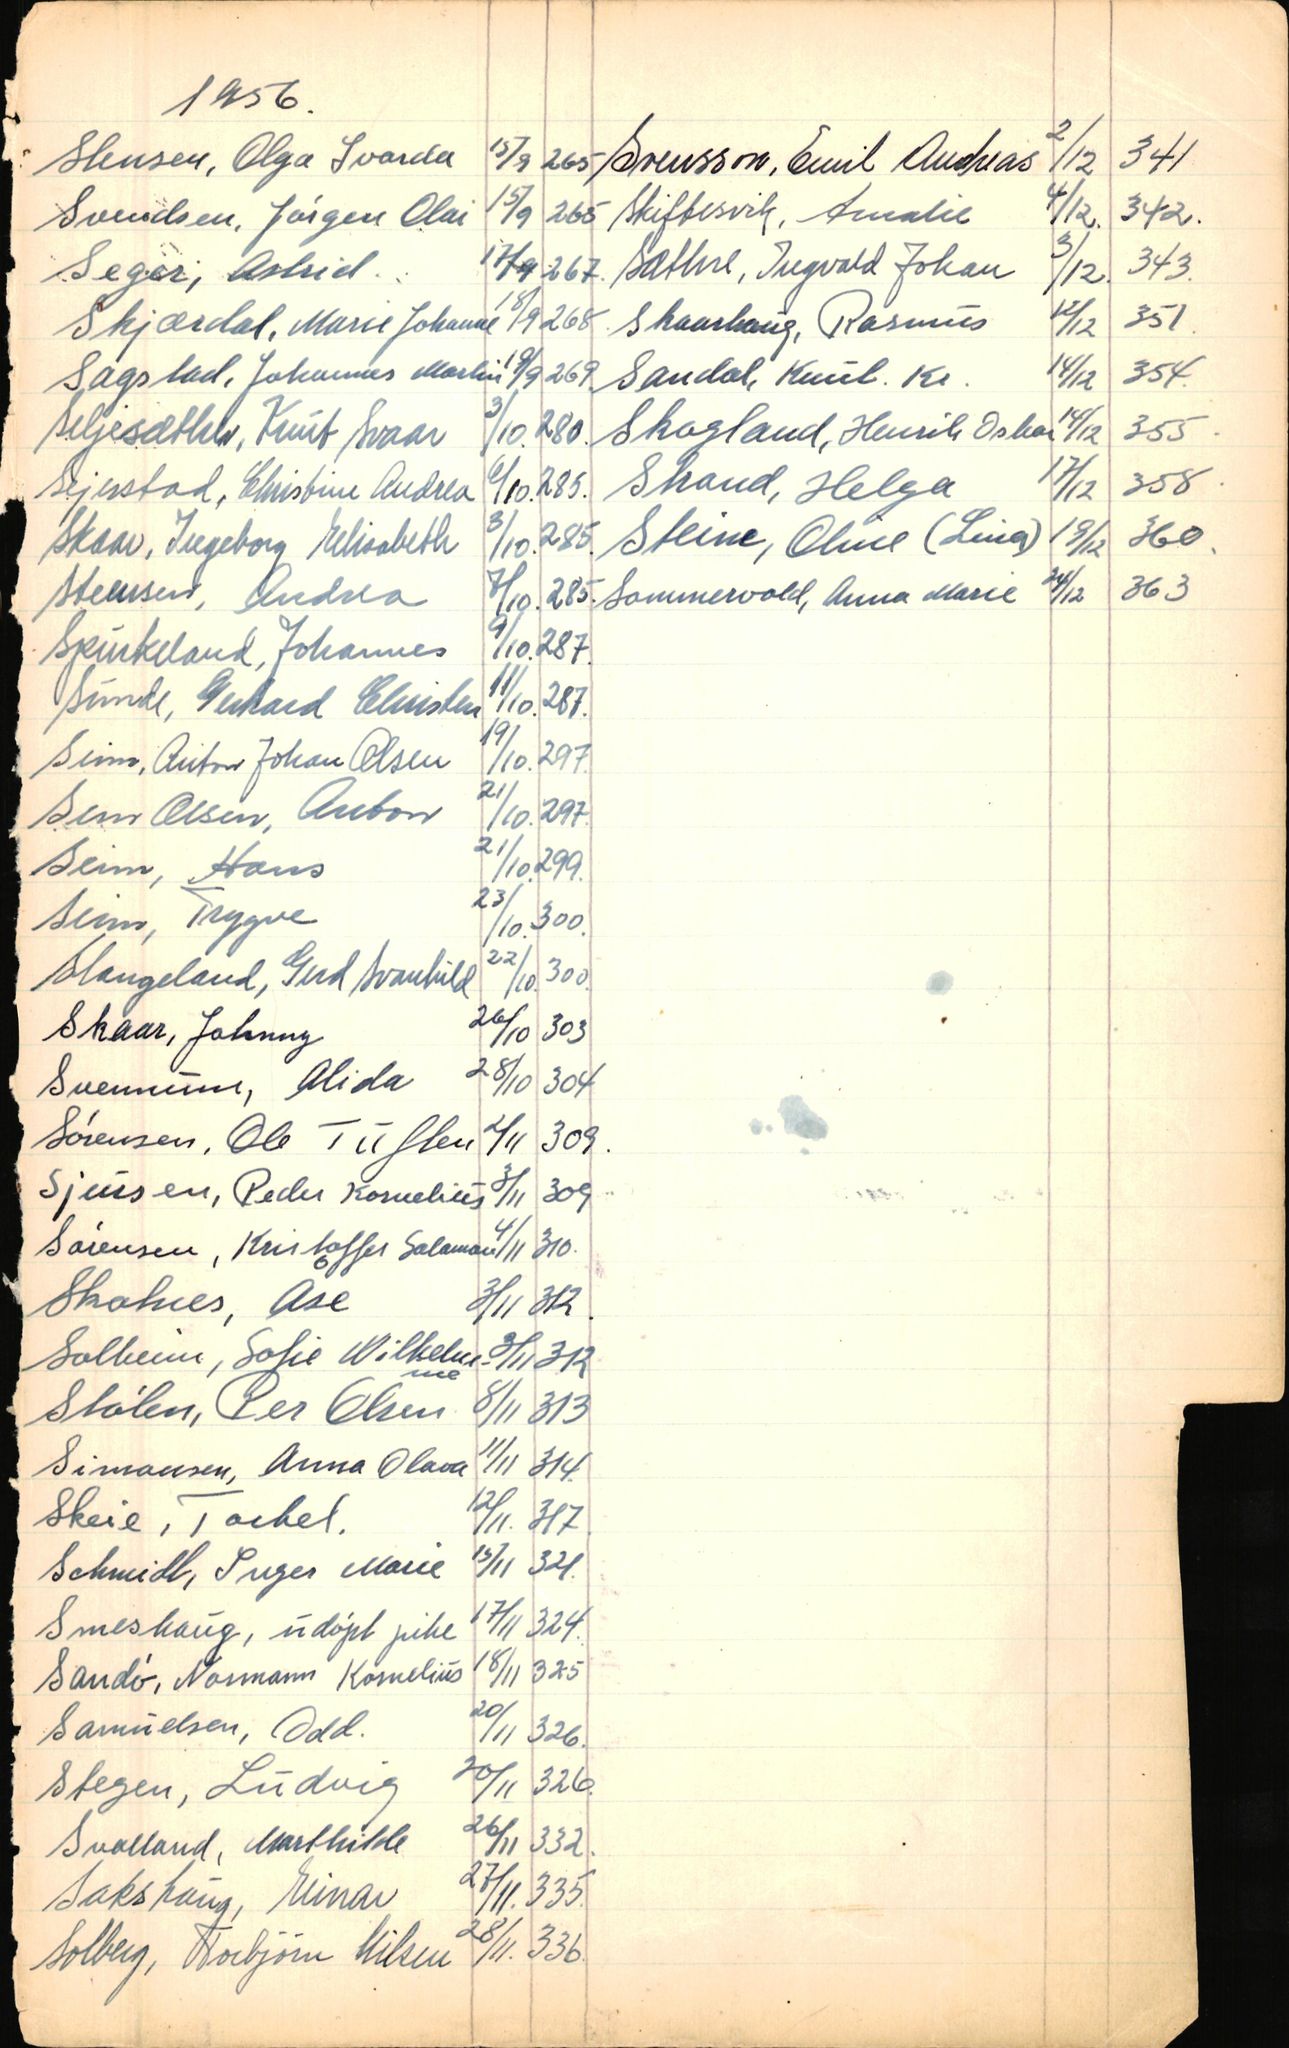 1956.
Stensen, Olga Svarda 15/9 265
Svendsen, Jörgen Olai 15/9 265
Seger, Astrid 17/9 267.
Skjærdal, Marie Johanne 18/9 268.
Sagstad, Johannes Martin 19/9 269.
Seljesæther, Knut Ivaar 3/10. 280.
Sjerstad, Christine Andrea 6/10. 285.
Skaar, Ingeborg Elisabeth 3/10. 285.
Stensen, Andrea 7/10. 285.
Spurkeland, Johannes 9/10. 287.
Sunde, Gerhard Christen 11/10. 287.
Seim, Anton Johan Olsen 19/10. 297.
Seim Olsen, Anton 21/10. 297.
Seim, Hans 21/10. 299.
Seim, Trygve 23/10. 300.
Stangeland, Gerd Svanhild 22/10. 300.
Skaar, Johnny 26/10 303
Svennum, Alida 28/10 304
Sörensen, Ole Tuften 2/11 309.
Sjursen, Peder Kornelius 3/11 309
Sörensen, Kristoffer Salamon 4/11 310.
Skolnes, Åse 3/11 312.
Solheim, Sofie Wilhelmine 3/11 312
Stölen, Per Olsen 8/11 313
Simonsen, Anna Olava 11/11 314.
Skeie, Torkel. 12/11. 317.
Schmidt, Inger Marie 15/11 321.
Smeshaug, udöpt pike 17/11 324.
Sandö, Normann Kornelius 18/11 325
Samuelsen, Odd. 20/11 326.
Stegen, Ludvig 20/11 326.
Svalland, Marthilde 26/11 332.
Sakshaug, Einar 27/11. 335.
Solberg, Torbjörn Nilsen 28/11. 336.
Svensson, Emil Andreas 2/12 341
Skiftesvik, Amalie 4/12. 342.
Sæthre, Ingvald Johan 3/12. 343.
Skaarhaug, Rasmus 12/12 351.
Sandal, Knut. Kr. 14/12 354.
Skogland, Henrik Oskar 14/12 355.
Strand, Helga 17/12 358.
Steine, Oline (Lina) 19/12 360.
Sommervold, Anna Marie 24/12 363